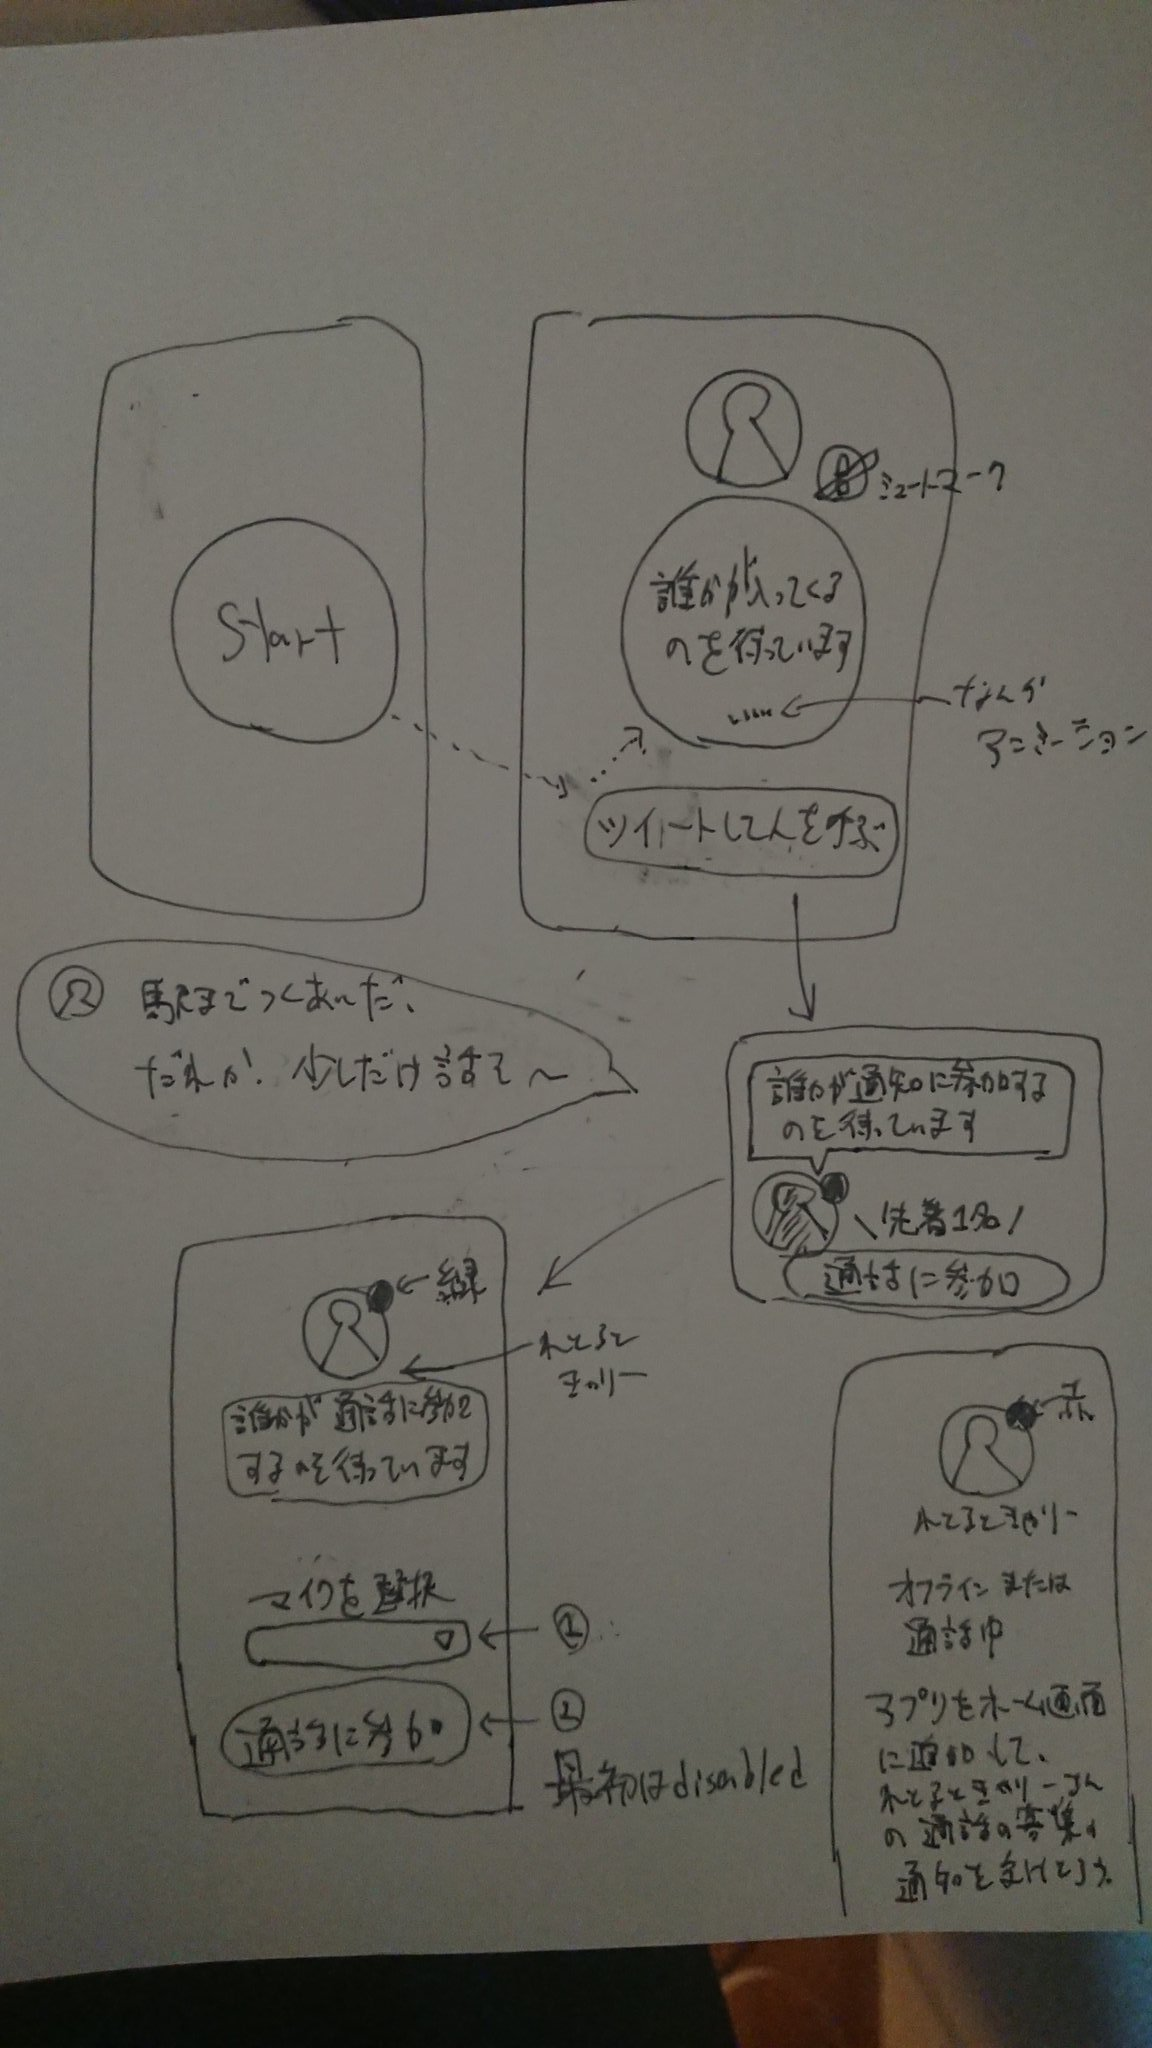 Start
ミュートマーク
誰かが入ってくる
のを待っています
.....
なんか
アニメーション
ツイートして人を呼ぶ
駅までつくあいだ、
だれか、少しだけ話そ〜
誰かが通知に参加する
のを待っています
\先着1名/
通話に参加
←緑
れとると
きゃりー
誰かが通話に参加
するのを待っています
マイクを選択
①
通話に参加
②
最初はdisabled
←赤
れとるときゃりー
オフラインまたは
通話中
アプリをホーム画面
に追加して、
れとるときゃりーさん
の通話の募集の
通知を受けとろう